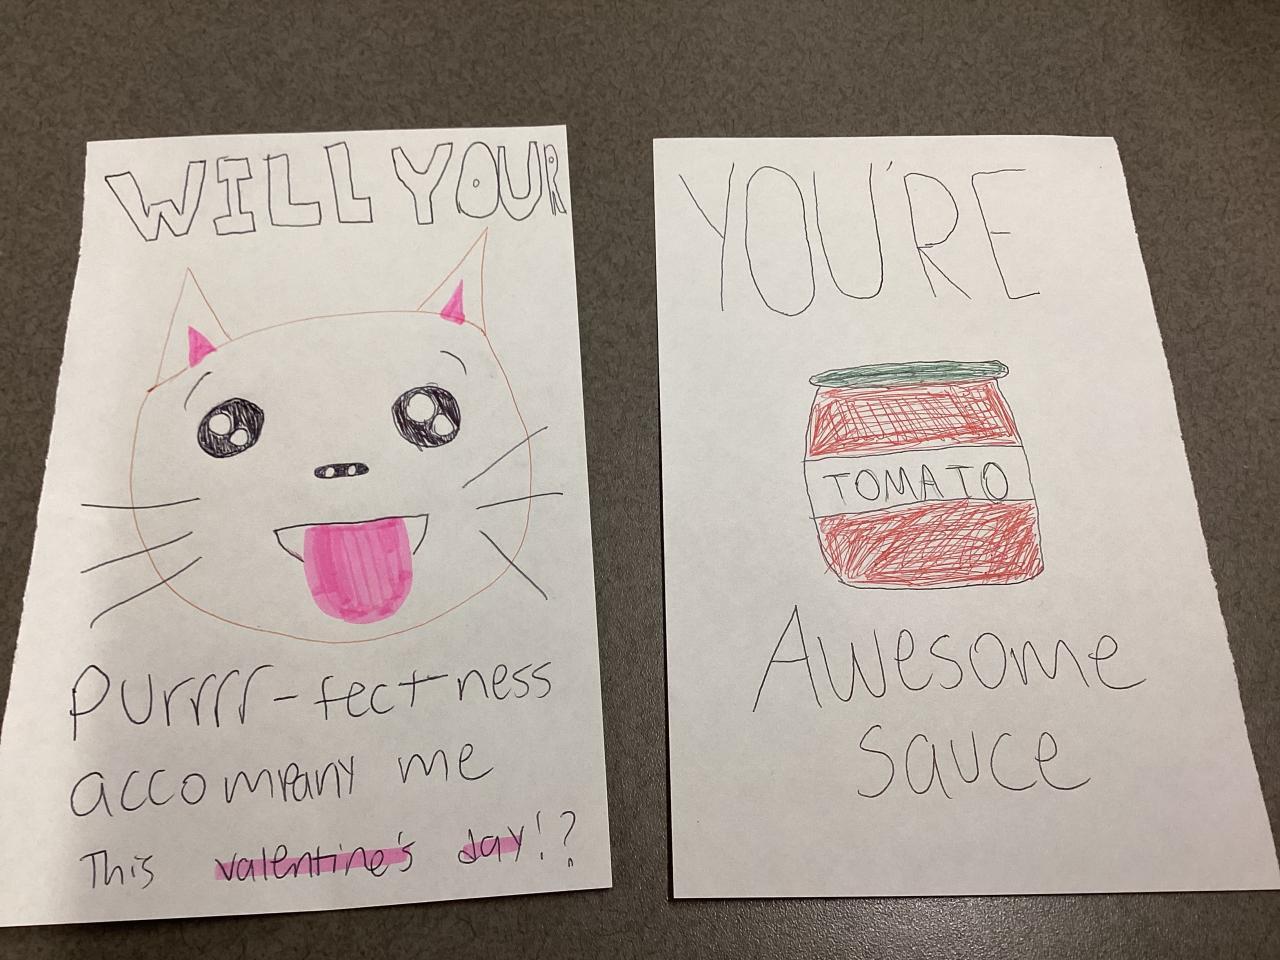 WILL YOUR
Purrrr-fectness
accompany me
This valentine's day!?
YOU'RE
TOMATO
Awesome
sauce